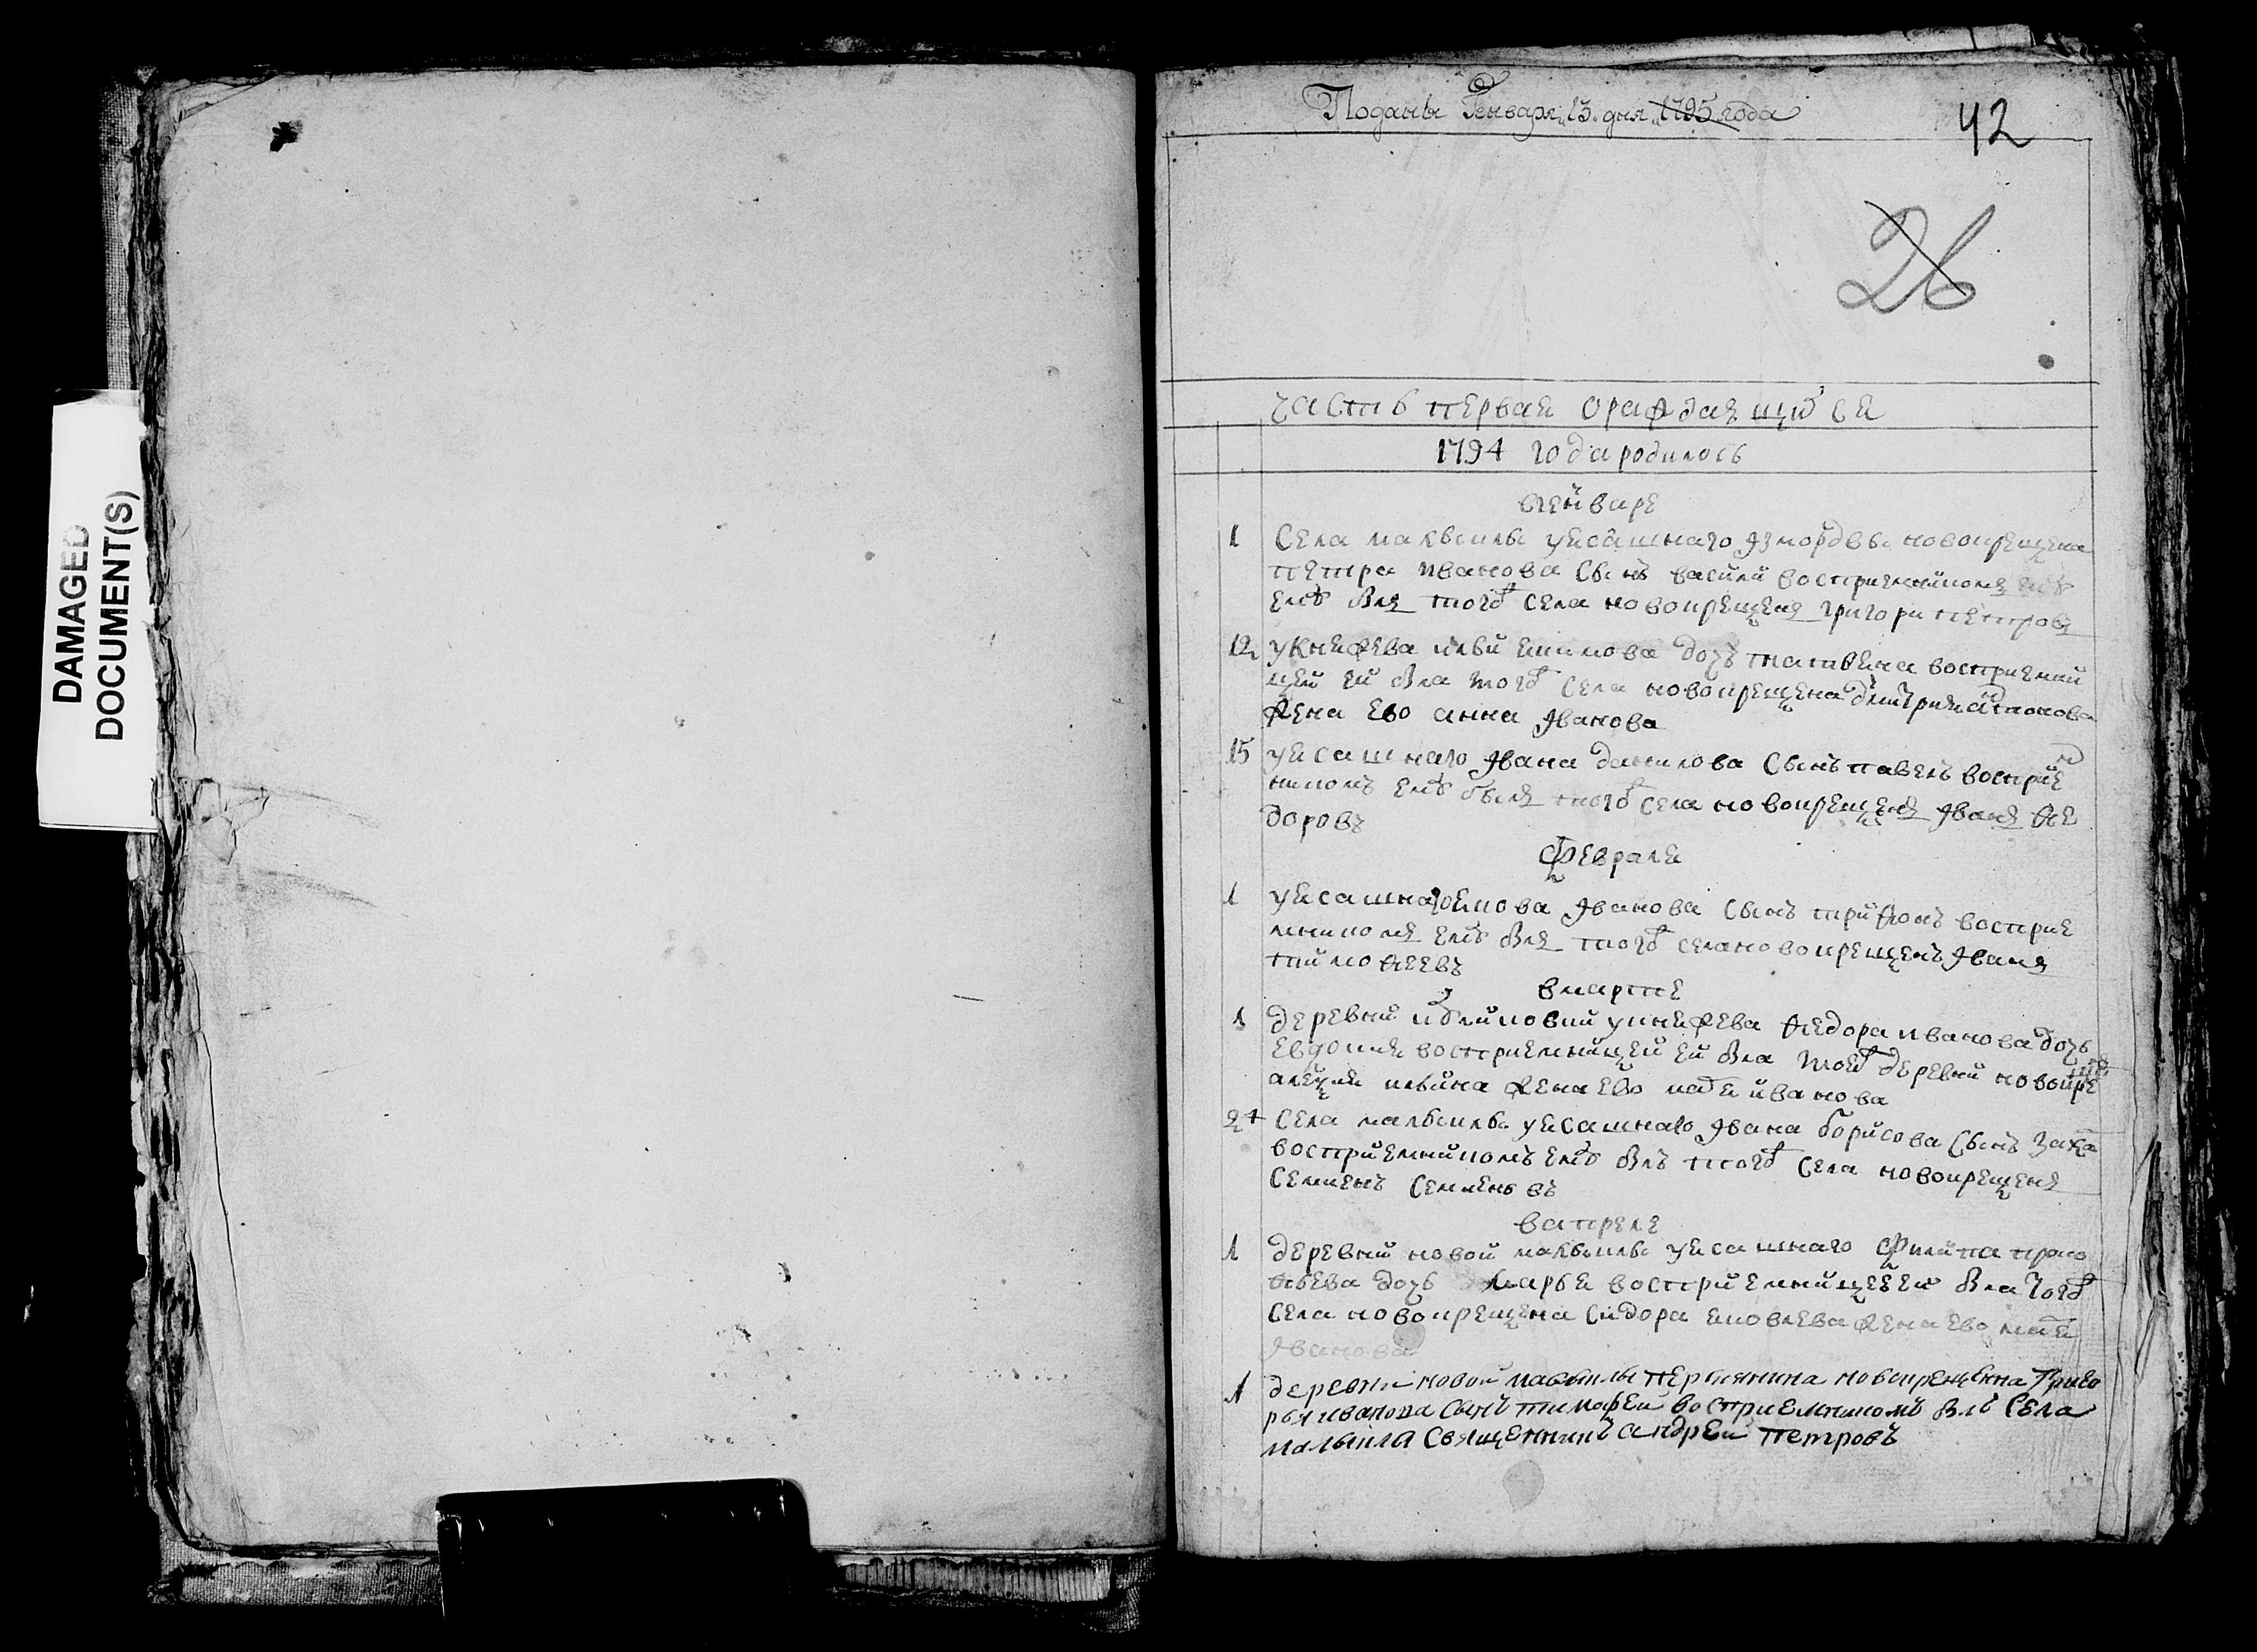 DAMAGED
DOCUMENT(S)
Поданы Генваря 13. дня 1795 года
42
26
часть первая о раждающихся
1794 года родилось
в генваре
1 Села малкыилы у ясашнаго из мордвы новокрещена
петра иванова сынъ васили восприемникомъ
ему былъ того села новокрещенъ григори петровъ
12 у княжева ильи екимова дочь татьяна восприемни
цей ей была того села новокрещена дмитрия
жена ево анна иванова
15 у ясашнаго ивана данилова сынъ павелъ восприем
никомъ ему былъ того села новокрещенъ иванъ ѳе
доровъ
февраля
1 у ясашнаго иванова сынъ триѳонъ восприе
мникомъ ему былъ того села новокрещенъ иванъ
тимоѳеевъ
в марте
1 деревни у княжева ѳедора иванова дочь
евдокия восприемницей ей была тоей деревни новокре
ильина жена ево иванова
24 Села у ясашнаго ивана борисова сынъ заха
восприемникомъ ему былъ того села новокрещенъ
семенъ семеновъ
в апреле
1 деревни новой у ясашнаго филипа проко
ѳьева дочь марья восприемницей ей была того
села новокрещена сидора яковлева жена ево
иванова
1 деревни новои новокрещена Григо
рья иванова сынъ тимофеи восприемникомъ былъ села
священникъ андреи петровъ